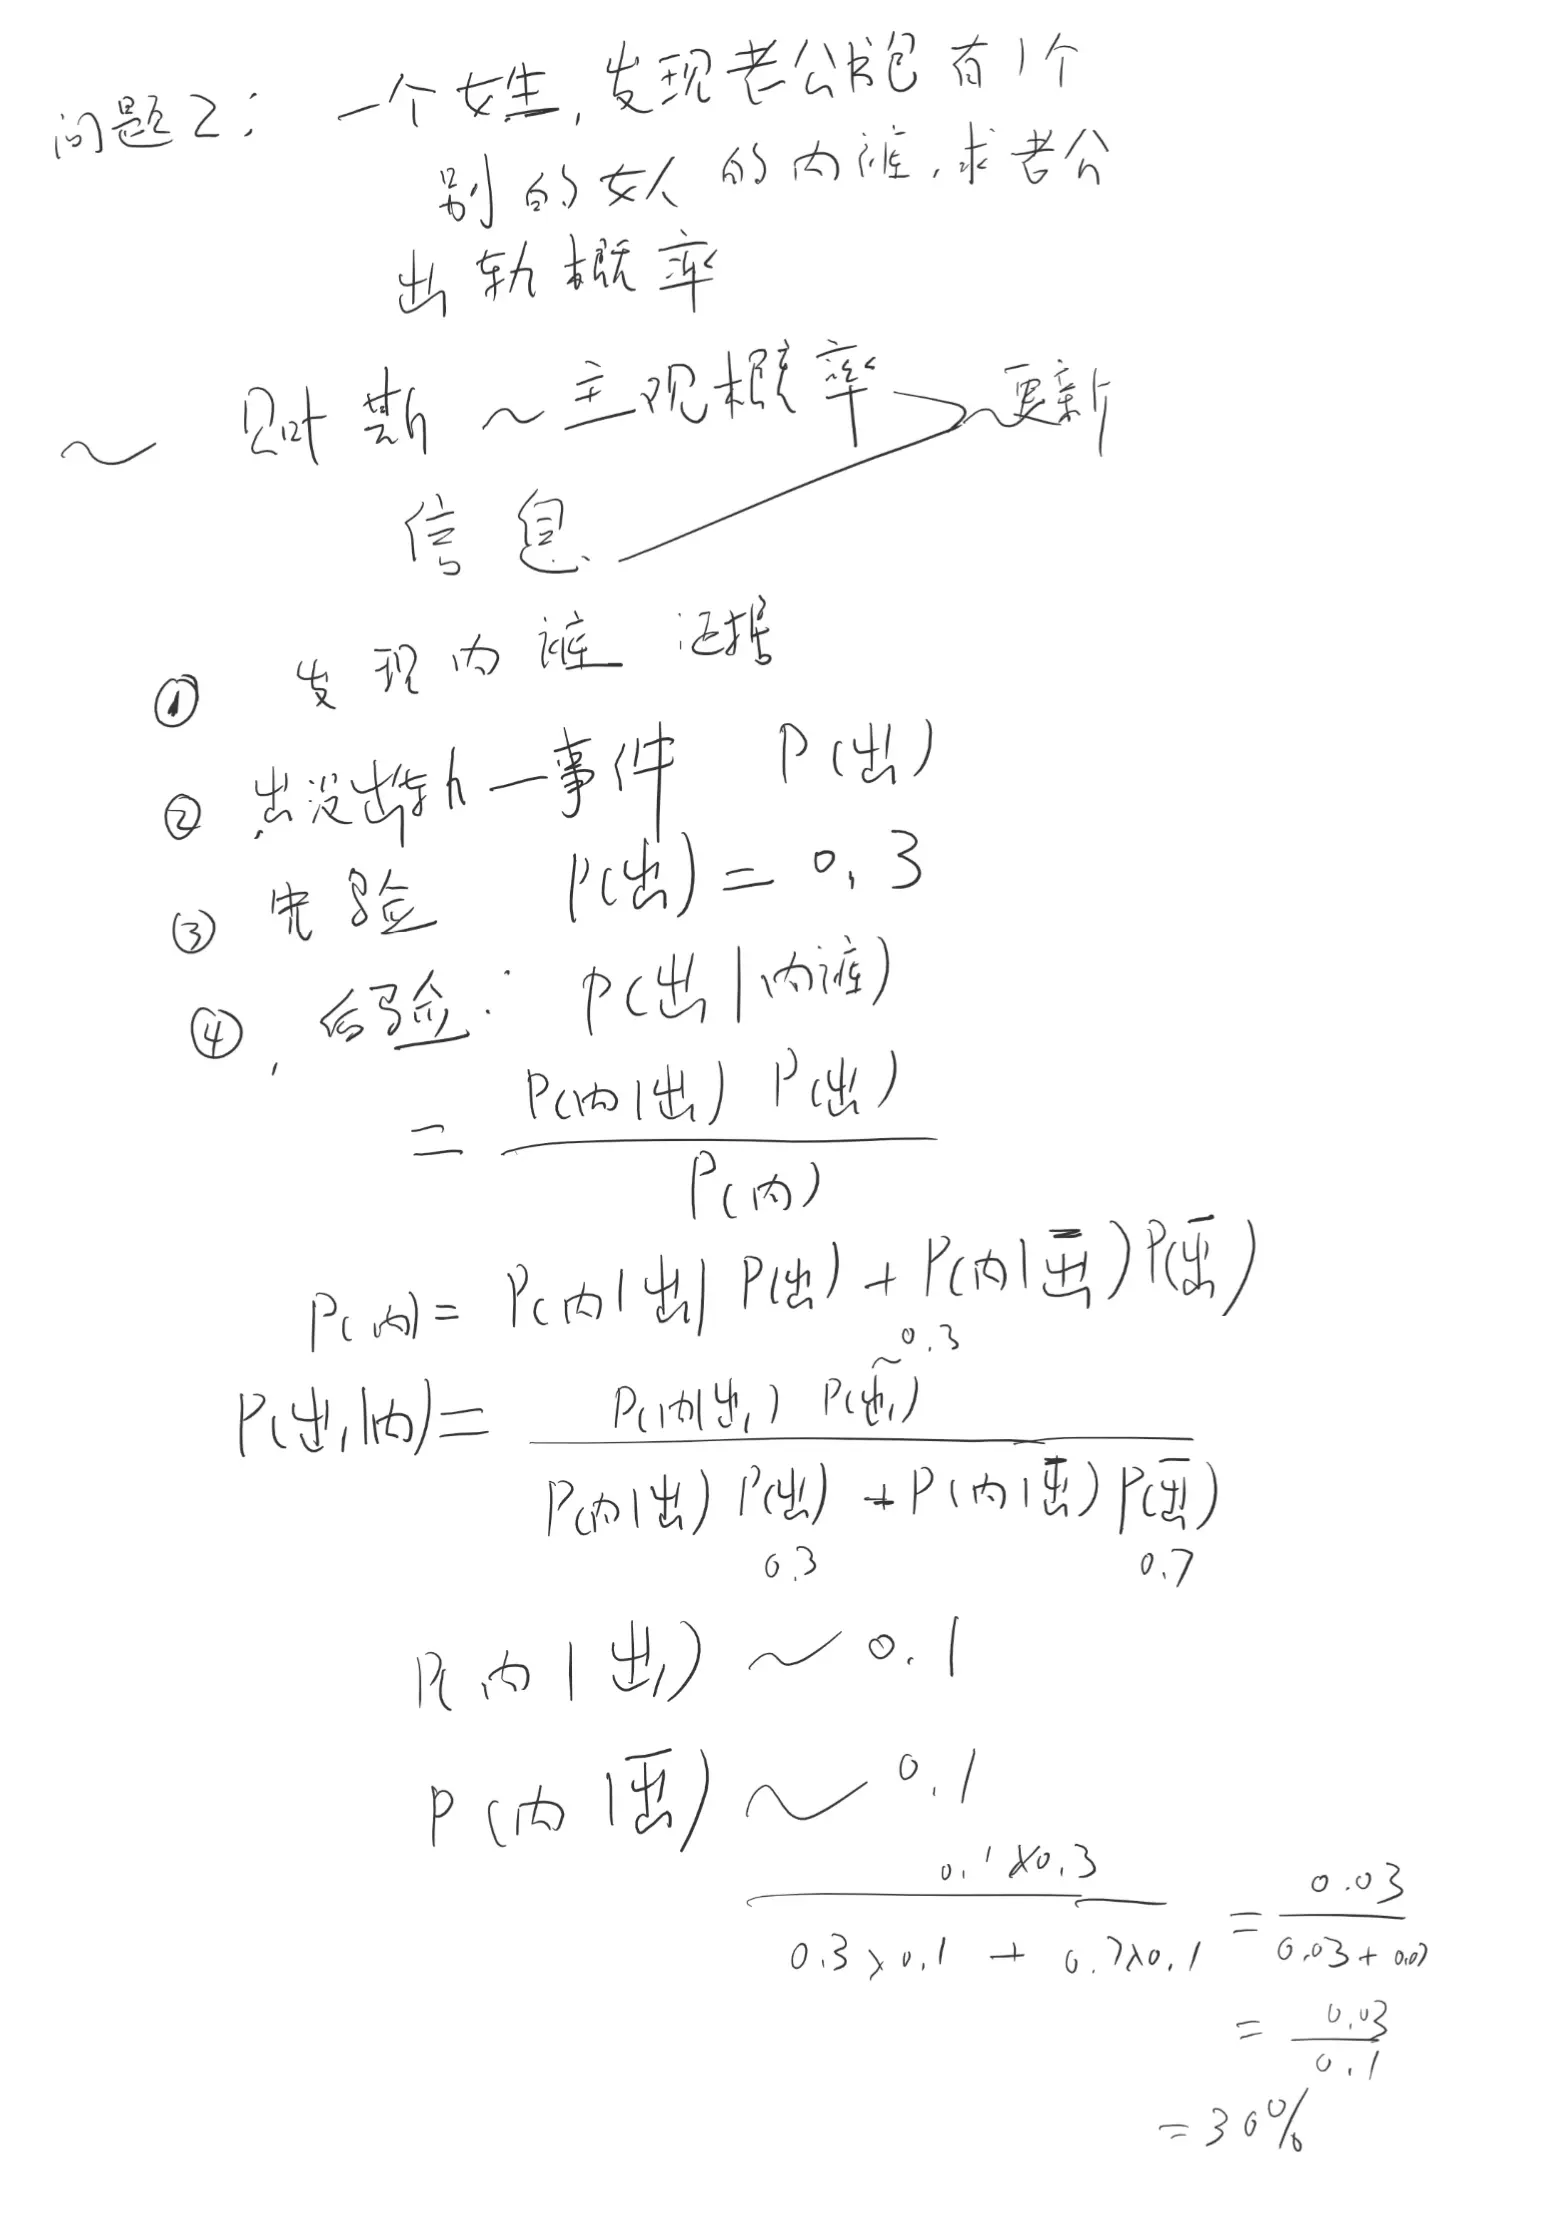 问题2: 一个女生,发现老公书包有1个
别的女人的内裤,求老公
出轨概率
~ 贝叶斯 ~ 主观概率 ~更新
信息
① 发现内裤 证据
② 出没出轨一事件 P(出)
③ 先验 P(出) = 0.3
④, 后验: P(出|内裤)
= P(内|出) P(出)
P(内)
P(内) = P(内|出) P(出) + P(内|出̅) P(出̅)
~0.3
P(出,|内) = P(内|出,) P(出,)
P(内|出) P(出) + P(内|出̅) P(出̅)
0.3 0.7
P(内|出,) ~ 0.1
P(内|出̅) ~ 0.1
0.1×0.3 = 0.03
0.3×0.1 + 0.7×0.1 0.03+0.07
= 0.03
0.1
= 30%